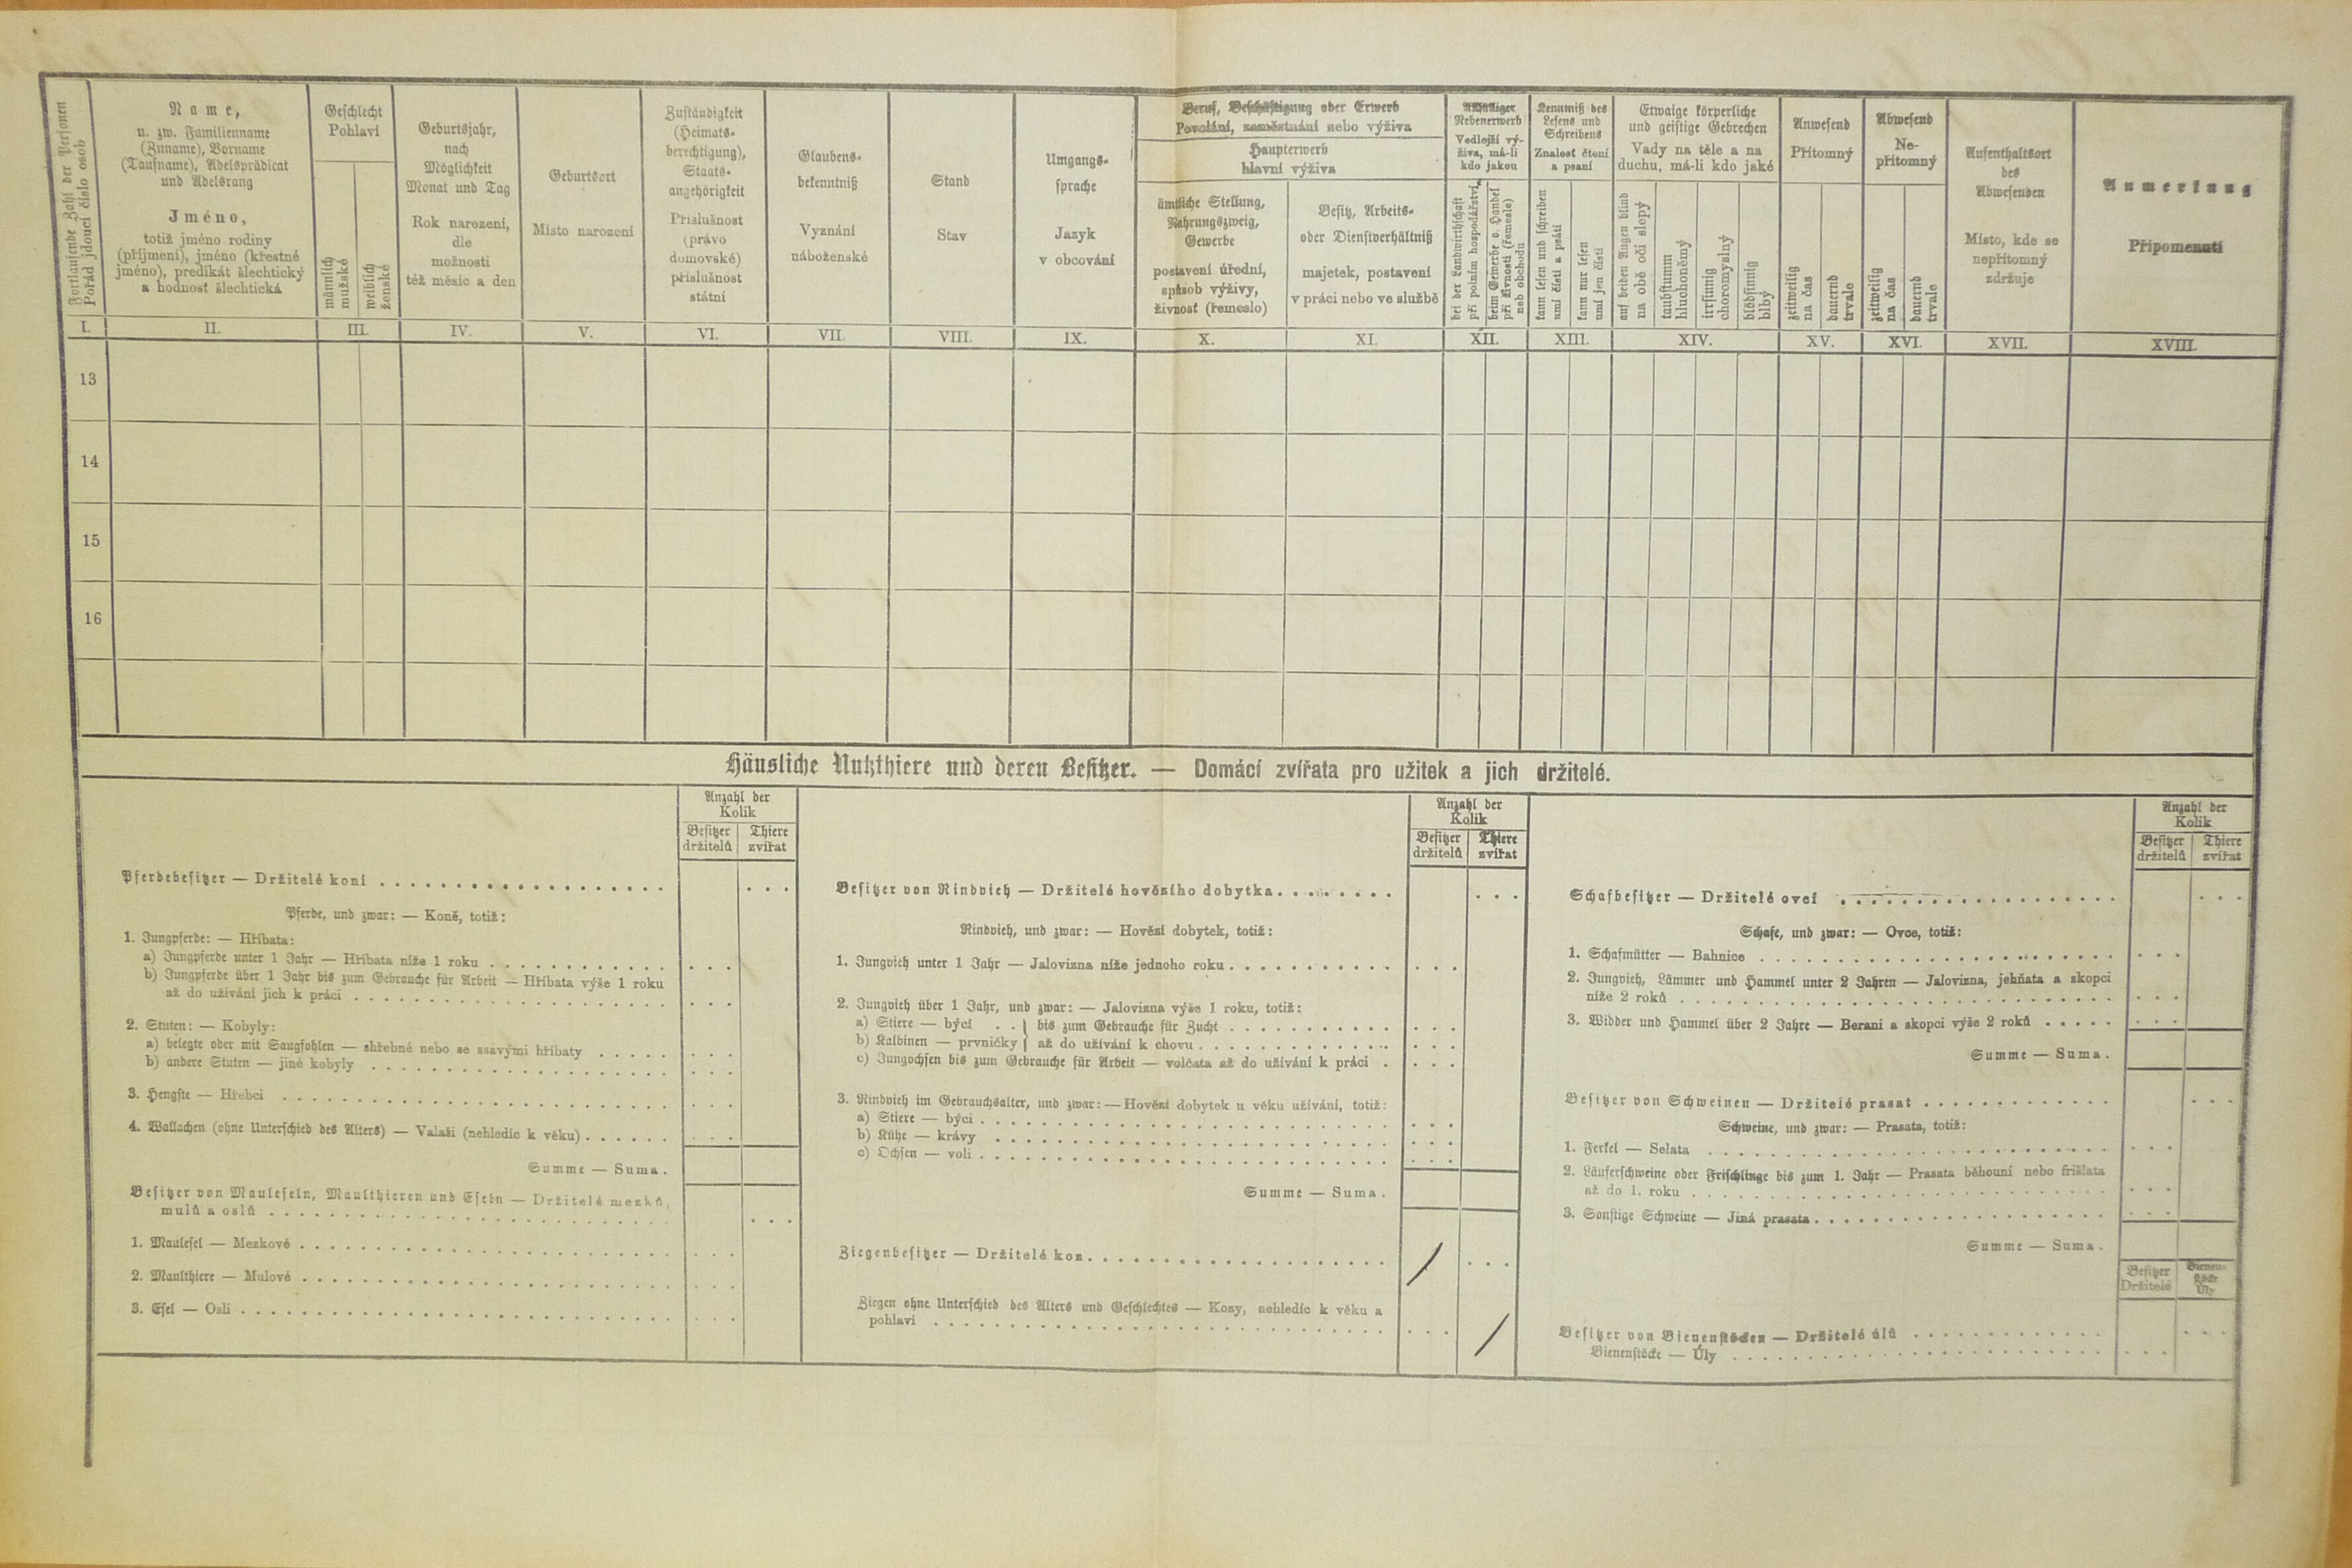 Fortlaufende Zahl der Personen
Pořád jdoucí číslo osob
Name,
u. zw. Familienname
(Zuname), Vorname
(Taufname), Adelsprädicat
und Adelsrang
Jméno,
totiž jméno rodiny
(příjmení), jméno (křestné
jméno), predikát šlechtický
a hodnost šlechtická
Geschlecht
Pohlaví
männlich
mužské
weiblich
ženské
Geburtsjahr,
nach
Möglichkeit
Monat und Tag
Rok narození,
dle
možnosti
též měsíc a den
Geburtsort
Místo narození
Zuständigkeit
(Heimats-
berechtigung),
Staats-
angehörigkeit
Příslušnost
(právo
domovské)
příslušnost
státní
Glaubens-
bekenntniß
Vyznání
náboženské
Stand
Stav
Umgangs-
sprache
Jazyk
v obcování
Beruf, Beschäftigung oder Erwerb
Povolání, zaměstnání nebo výživa
Haupterwerb
hlavní výživa
ämtliche Stellung,
Nahrungszweig,
Gewerbe
postavení úřední,
spůsob výživy,
živnosť (řemeslo)
Besitz, Arbeits-
oder Dienstverhältniß
majetek, postavení
v práci nebo ve službě
Allfälliger
Nebenerwerb
Vedlejší vý-
živa, má-li
kdo jakou
bei der Landwirthschaft
při polním hospodářství
beim Gewerbe o. Handel
při živnosti (řemesle)
neb obchodu
Kenntniß des
Lesens und
Schreibens
Znalosť čtení
a psaní
kann lesen und schreiben
umí čísti a psáti
kann nur lesen
umí jen čísti
Etwaige körperliche
und geistige Gebrechen
Vady na těle a na
duchu, má-li kdo jaké
auf beiden Augen blind
na obě oči slepý
taubstumm
hluchoněmý
irrsinnig
choromyslný
blödsinnig
blbý
Anwesend
Přítomný
zeitweilig
na čas
dauernd
trvale
Abwesend
Ne-
přítomný
zeitweilig
na čas
dauernd
trvale
Aufenthaltsort
des
Abwesenden
Místo, kde se
nepřítomný
zdržuje
Anmerkung
Připomenutí
I. II. III. IV. V. VI. VII. VIII. IX. X. XI. XII. XIII. XIV. XV. XVI. XVII. XVIII.
13
14
15
16
Häusliche Nutzthiere und deren Besitzer. — Domácí zvířata pro užitek a jich držitelé.
Anzahl der
Kolik
Besitzer Thiere
držitelů zvířat
Pferdebesitzer — Držitelé koní
Pferde, und zwar: — Koně, totiž:
1. Jungpferde: — Hříbata:
a) Jungpferde unter 1 Jahr — Hříbata níže 1 roku
b) Jungpferde über 1 Jahr bis zum Gebrauche für Arbeit — Hříbata výše 1 roku
až do užívání jich k práci
2. Stuten: — Kobyly:
a) belegte oder mit Saugfohlen — shřebné nebo se ssavými hříbaty
b) andere Stuten — jiné kobyly
3. Hengste — Hřebci
4. Wallachen (ohne Unterschied des Alters) — Valaši (nehledíc k věku)
Summe — Suma.
Besitzer von Mauleseln, Maulthieren und Eseln — Držitelé mezků,
mulů a oslů
1. Maulesel — Mezkové
2. Maulthiere — Mulové
3. Esel — Osli
Anzahl der
Kolik
Besitzer Thiere
držitelů zvířat
Besitzer von Rindvieh — Držitelé hovězího dobytka
Rindvieh, und zwar: — Hovězí dobytek, totiž:
1. Jungvieh unter 1 Jahr — Jalovizna níže jednoho roku
2. Jungvieh über 1 Jahr, und zwar: — Jalovizna výše 1 roku, totiž:
a) Stiere — býci . . } bis zum Gebrauche für Zucht
b) Kalbinen — prvničky } až do užívání k chovu
c) Jungochsen bis zum Gebrauche für Arbeit — volčata až do užívání k práci
3. Rindvieh im Gebrauchsalter, und zwar: — Hovězí dobytek u věku užívání, totiž:
a) Stiere — býci
b) Kühe — krávy
c) Ochsen — voli
Summe — Suma.
Ziegenbesitzer — Držitelé koz 1
Ziegen ohne Unterschied des Alters und Geschlechtes — Kozy, nehledíc k věku a
pohlaví 1
Anzahl der
Kolik
Besitzer Thiere
držitelů zvířat
Schafbesitzer — Držitelé ovcí
Schafe, und zwar: — Ovce, totiž:
1. Schafmütter — Bahnice
2. Jungvieh, Lämmer und Hammel unter 2 Jahren — Jalovizna, jehňata a skopci
níže 2 roků
3. Widder und Hammel über 2 Jahre — Berani a skopci výše 2 roků
Summe — Suma.
Besitzer von Schweinen — Držitelé prasat
Schweine, und zwar: — Prasata, totiž:
1. Ferkel — Selata
2. Läuferschweine oder Frischlinge bis zum 1. Jahr — Prasata běhouni nebo frišlata
až do 1. roku
3. Sonstige Schweine — Jiná prasata
Summe — Suma.
Besitzer Bienen-
Držitelé stöcke
Úly
Besitzer von Bienenstöcken — Držitelé úlů
Bienenstöcke — Úly